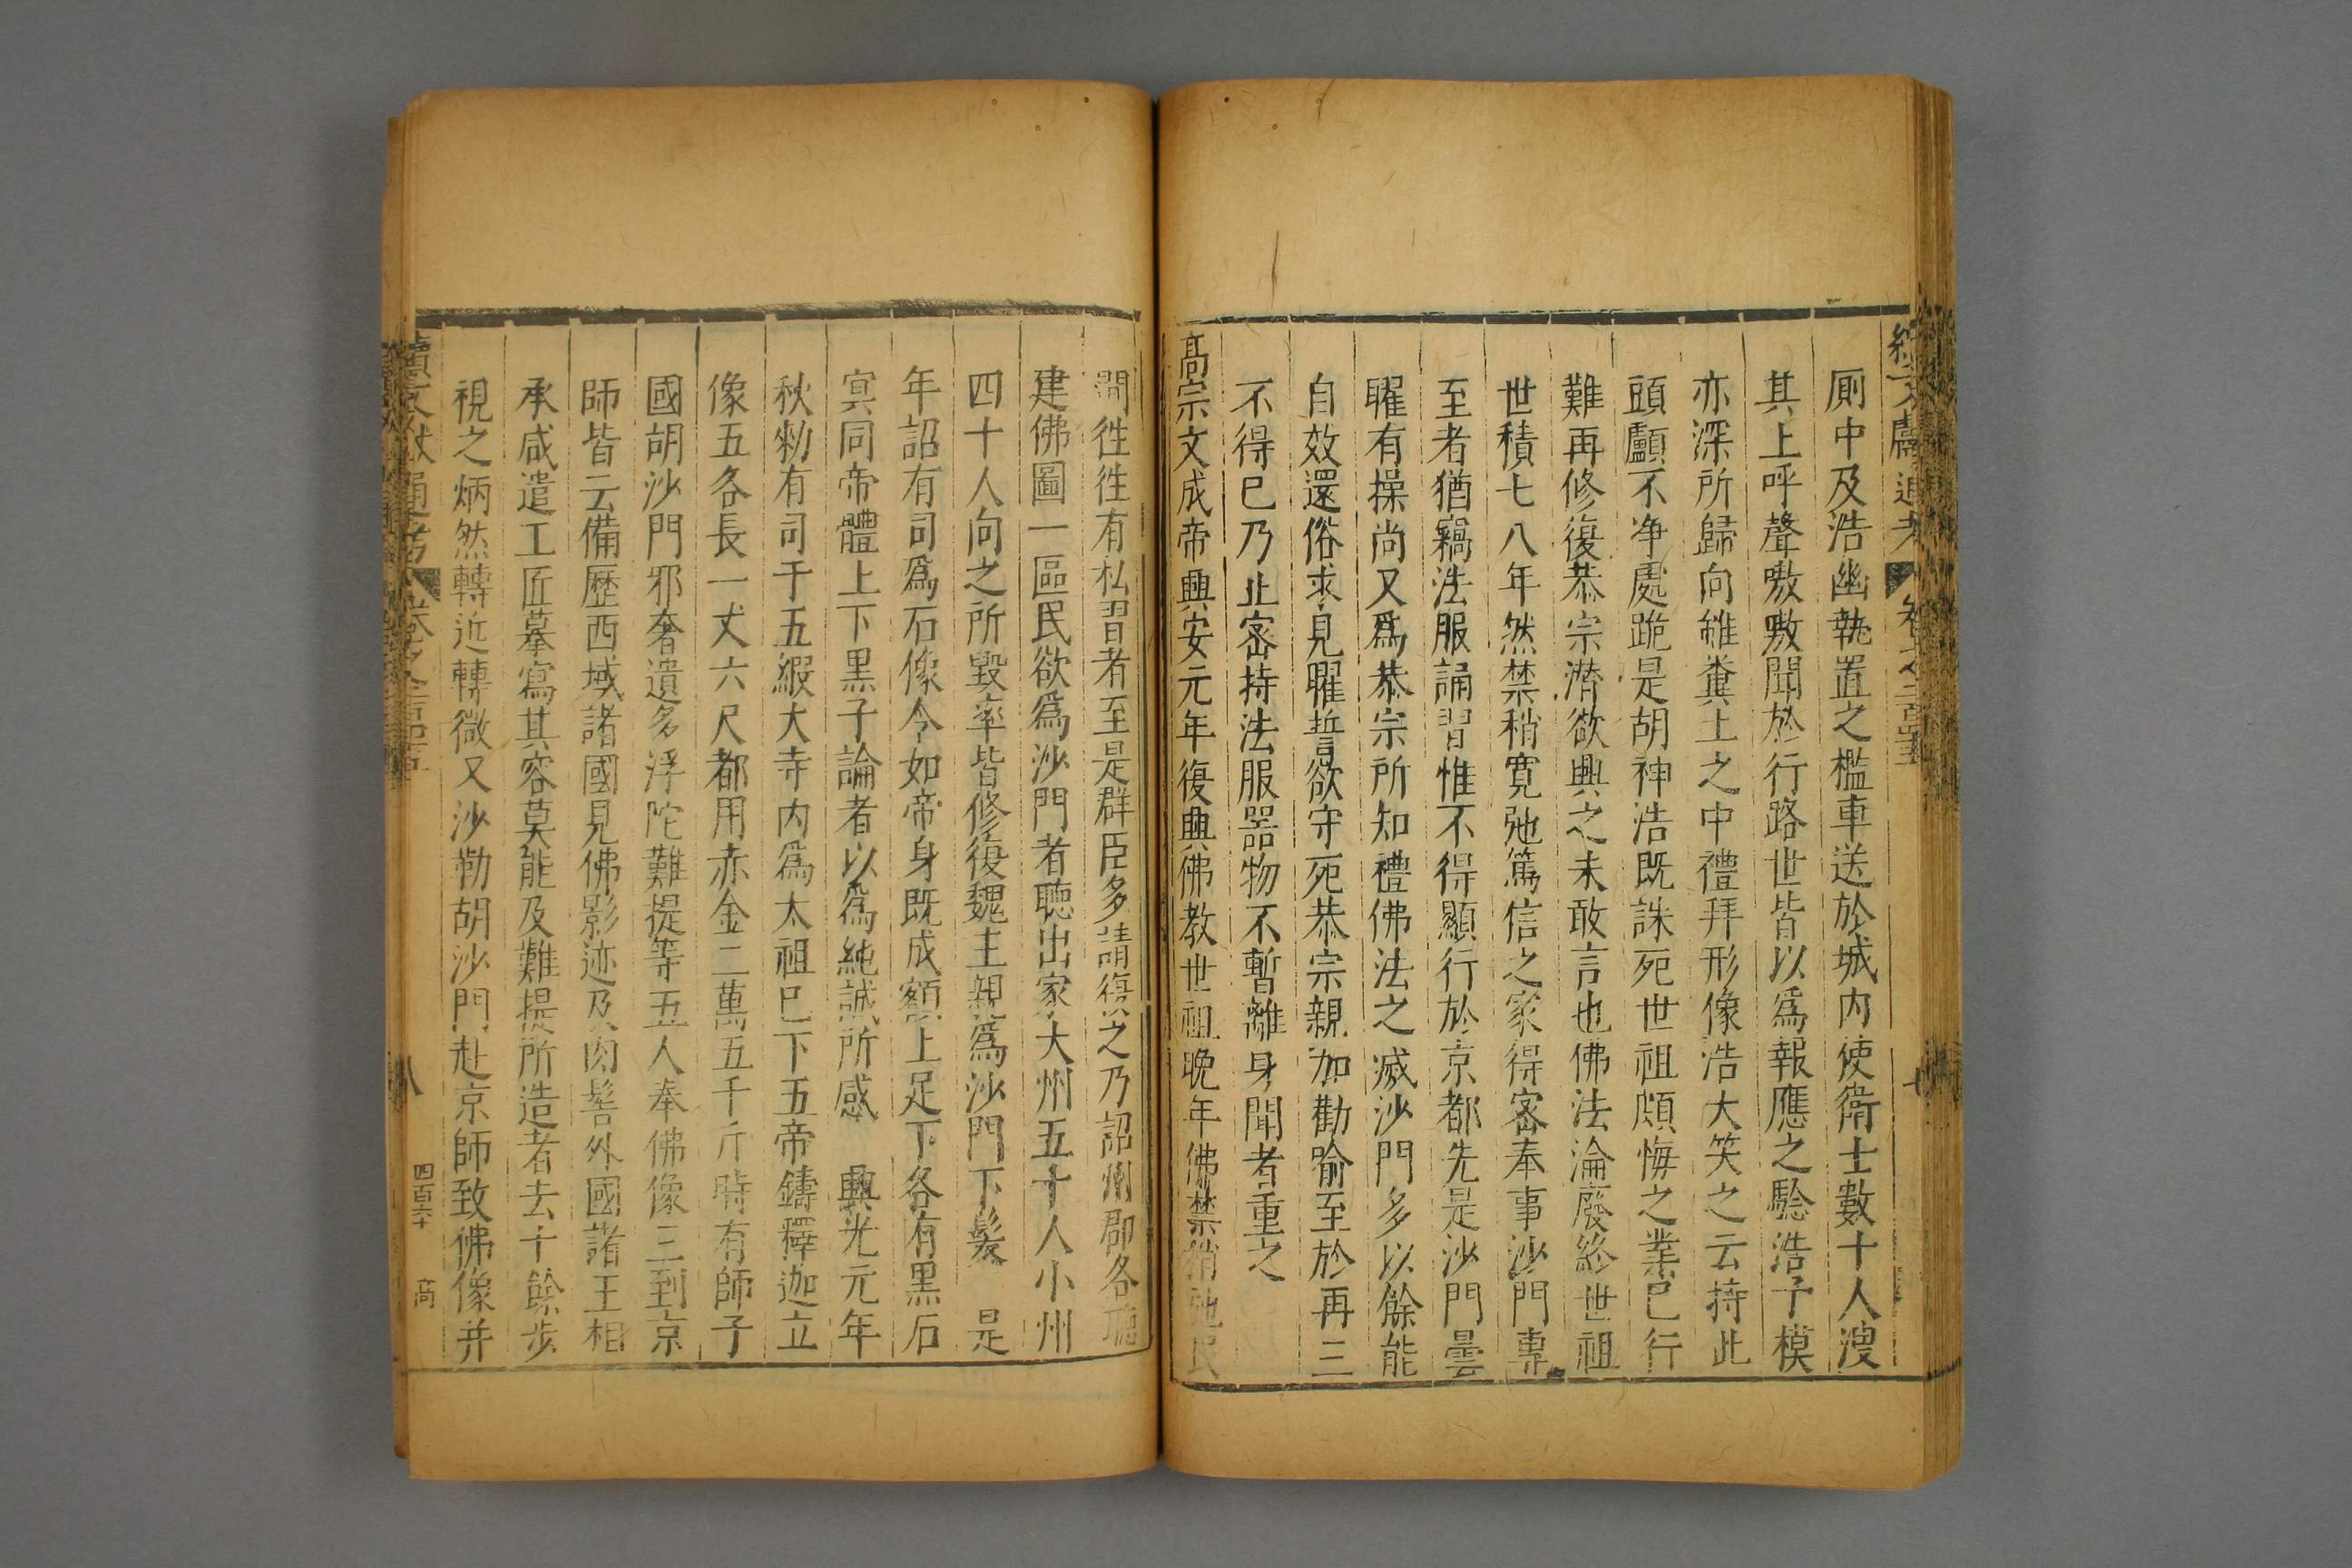 續文獻通考 卷之二百四十五 七
厠中及浩幽執置之檻車送於城内使衛士數十人溲
其上呼聲嗷嗷聞於行路世皆以爲報應之驗浩予模
亦深所歸向雖糞土之中禮拜形像浩大笑之云持此
頭顱不净處跪是胡神浩既誅死世祖頗悔之業已行
難再修復恭宗潜欲興之未敢言也佛法淪廢終世祖
世積七八年然禁稍寛弛篤信之家得密奉事沙門專
至者猶竊法服誦習惟不得顯行於京都先是沙門曇
曜有操尚又爲恭宗所知禮佛法之滅沙門多以餘能
自效還俗求見曜誓欲守死恭宗親加勸喻至於再三
不得已乃止密持法服器物不暫離身聞者重之
髙宗文成帝興安元年復興佛教世祖晚年佛禁稍弛民
間徃徃有私習者至是群臣多請復之乃詔州郡各聽
建佛圖一區民欲爲沙門者聽出家大州五十人小州
四十人向之所毀率皆修復魏主親爲沙門下髮 是
年詔有司爲石像令如帝身既成額上足下各有黑石
冥同帝體上下黑子論者以爲純誠所感 興光元年
秋勑有司于五緞大寺内爲太祖已下五帝鑄釋迦立
像五各長一丈六尺都用赤金二萬五千斤時有師子
國胡沙門邪奢遺多浮陀難提等五人奉佛像三到京
師皆云備歷西域諸國見佛影迹及肉髻外國諸王相
承咸遣工匠摹寫其容莫能及難提所造者去十餘步
視之炳然轉近轉微又沙勒胡沙門赴京師致佛像并
續文獻通考 卷之二百四十五 八 四百六十 高